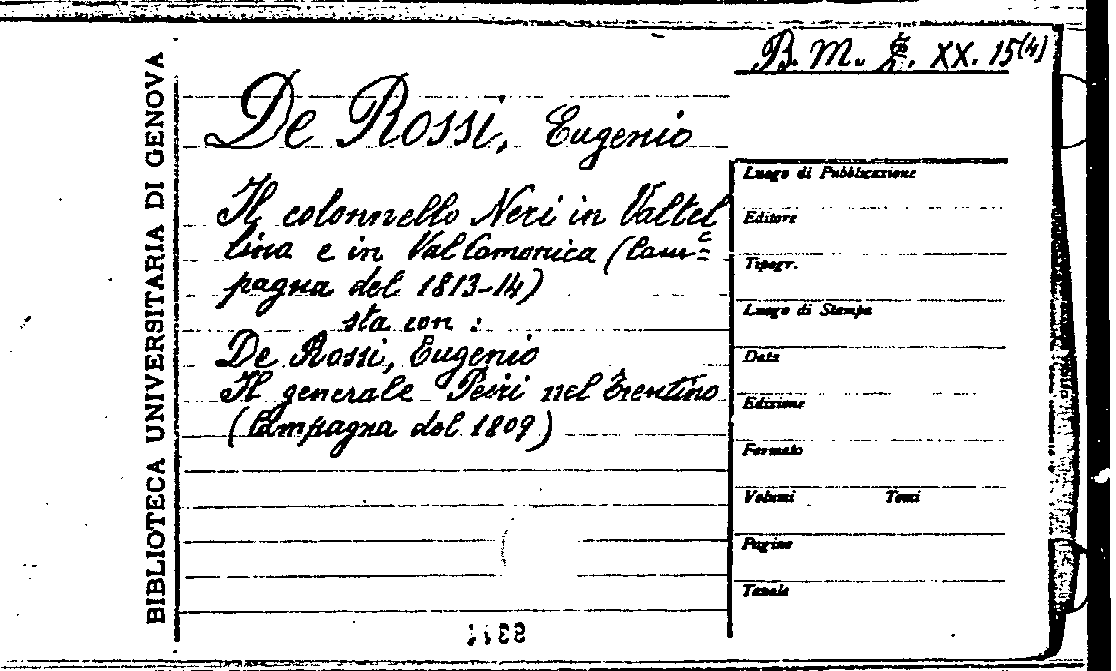 BIBLIOTECA UNIVERSITARIA DI GENOVA
B. M. XX. 15(4)
De Rossi, Eugenio
Il colonnello Neri in Valtel
lina e in Val Camonica (Cam=
pagna del 1813-14)
sta con :
De Rossi, Eugenio
Il generale Peiri nel Trentino
(Campagna del 1809)
Luogo di Pubblicazione
Editore
Tipogr.
Luogo di Stampa
Data
Edizione
Formato
Volumi Tomi
Pagine
Tavole